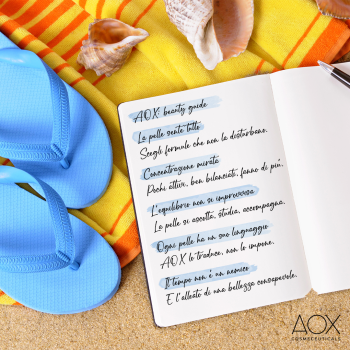 AOX beauty guide
La pelle sente tutto
Scegli formule che non la disturbano.
Concentrazione mirata
Pochi attivi, ben bilanciati, fanno di più.
L'equilibrio non si improvvisa
La pelle si ascolta, studia, accompagna.
Ogni pelle ha un suo linguaggio
AOX lo traduce, non lo impone.
Il tempo non è un nemico
È l'alleato di una bellezza consapevole.
AOX
COSMECEUTICALS